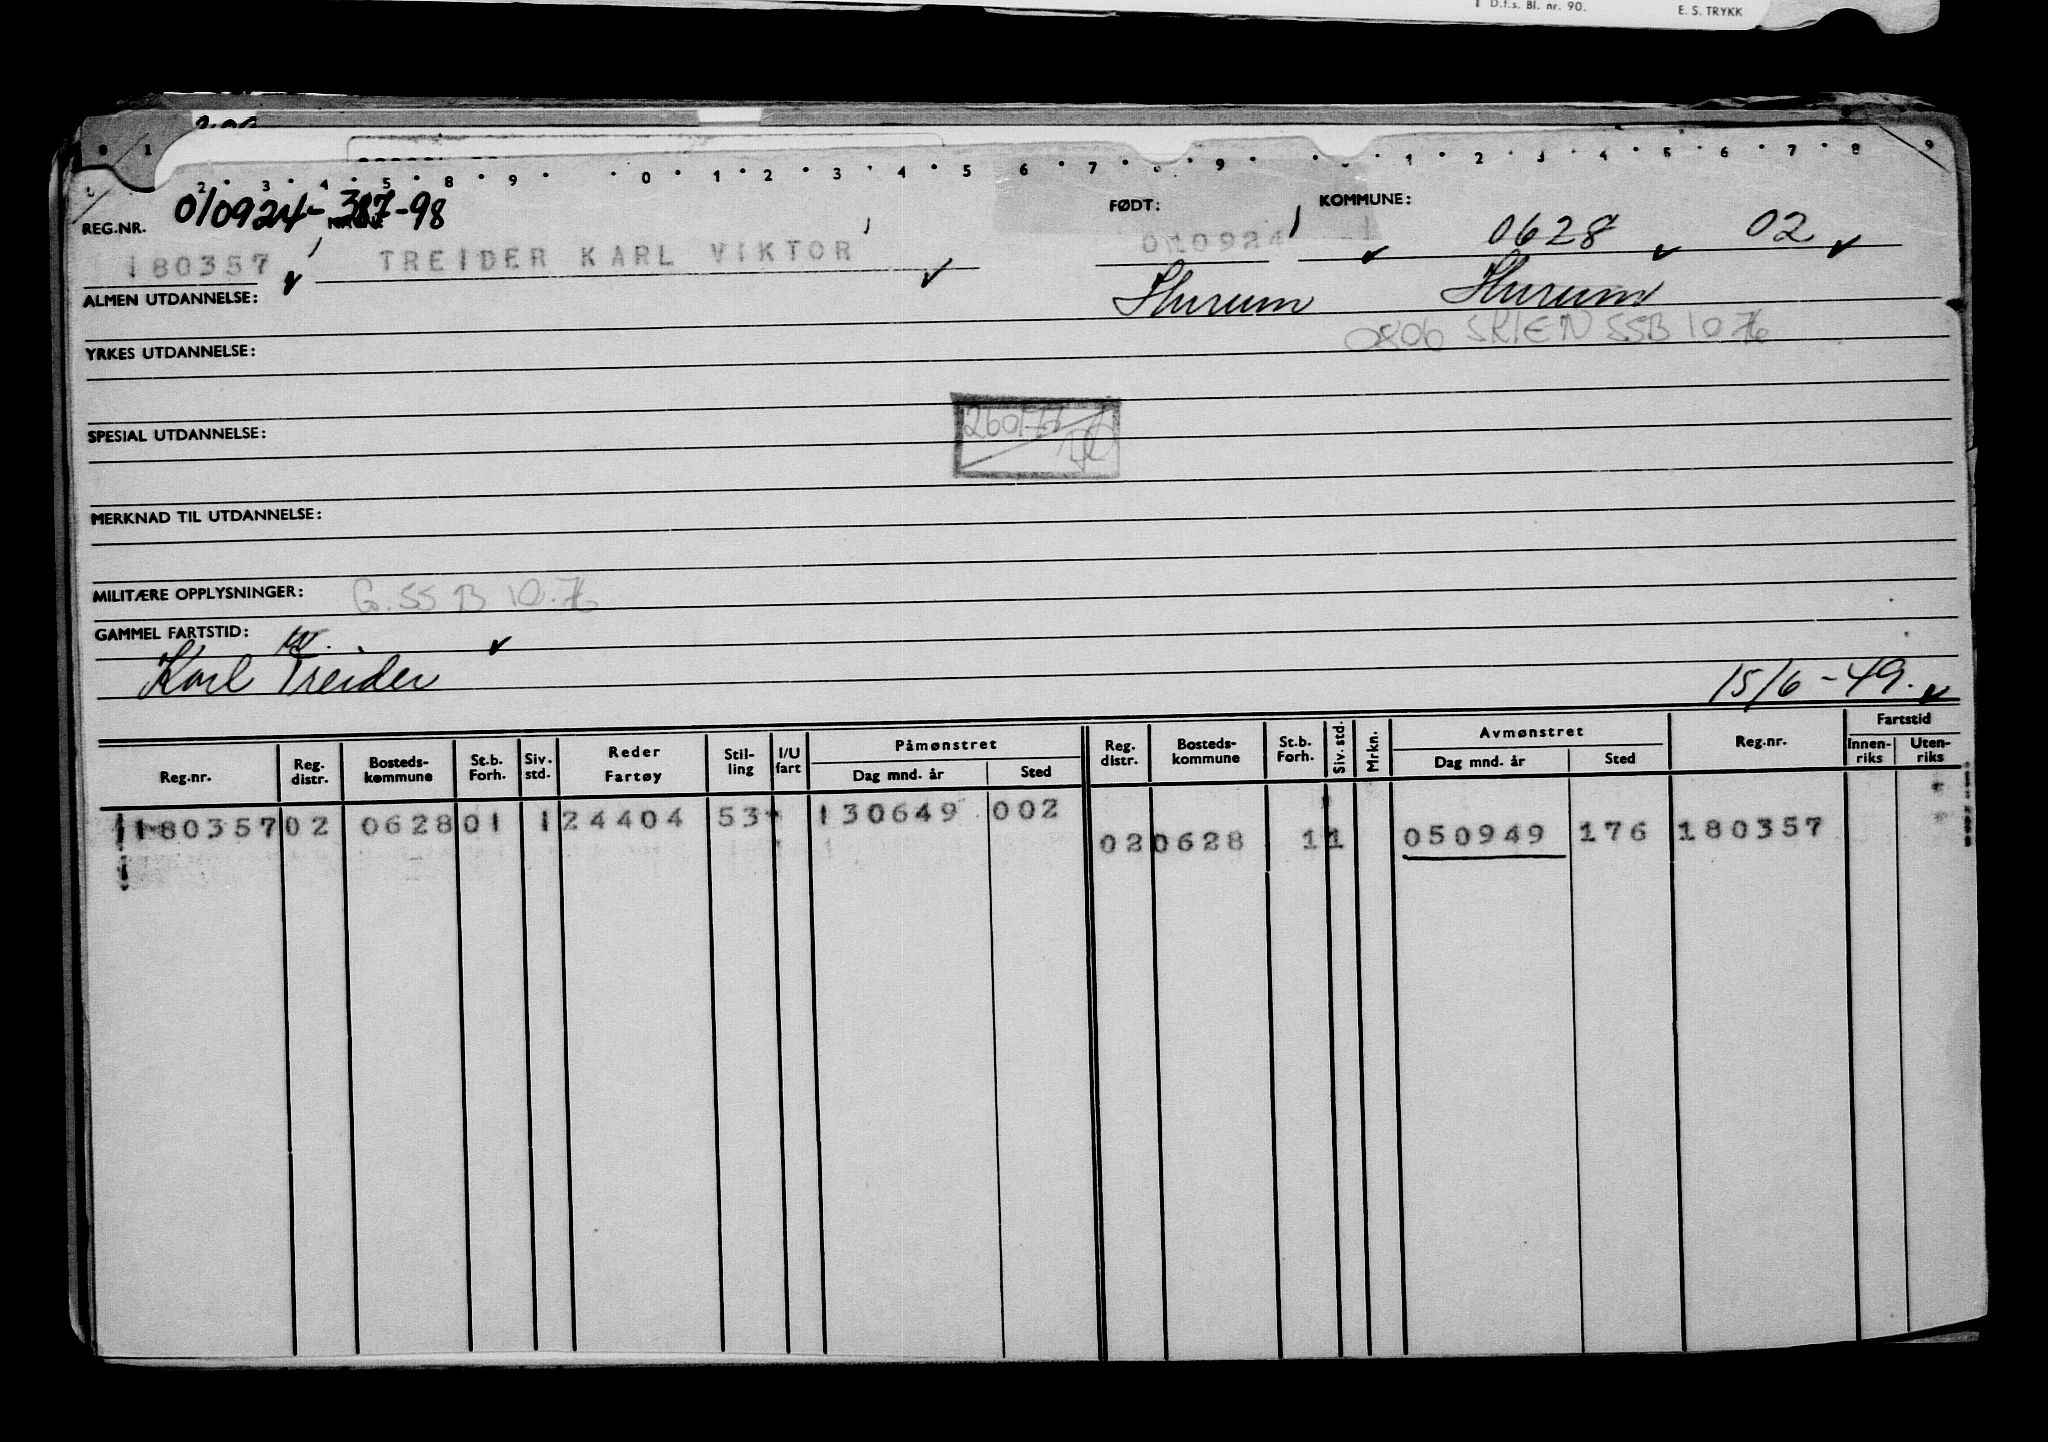 D.f.s. Bl. nr. 90. E. S. TRYKK
0 1 2 3 4 5 8 9 0 1 2 3 4 5 6 7 9 1 2 3 4 5 6 7 8 9
REG.NR. 010924-387-98 FØDT: KOMMUNE:
180357 TREIDER KARL VIKTOR 010924 0628 02
ALMEN UTDANNELSE: Hurum Hurum
0806 SKIEN SSB 10 76
YRKES UTDANNELSE:
260176
SPESIAL UTDANNELSE:
MERKNAD TIL UTDANNELSE:
MILITÆRE OPPLYSNINGER: G. SS B 10.76
GAMMEL FARTSTID:
Karl Treider 15/6-49.
Reg.nr. Reg. distr. Bosteds-kommune St.b. Forh. Siv. std. Reder Fartøy Stil-ling I/U fart Påmønstret Dag mnd. år Sted Reg. distr. Bosteds-kommune St.b. Forh. Siv. std. Mrkn. Avmønstret Dag mnd. år Sted Reg.nr. Fartstid Innen-riks Uten-riks
180357 02 0628 01 1 24404 53 130649 002
02 0628 1 1 050949 176 180357